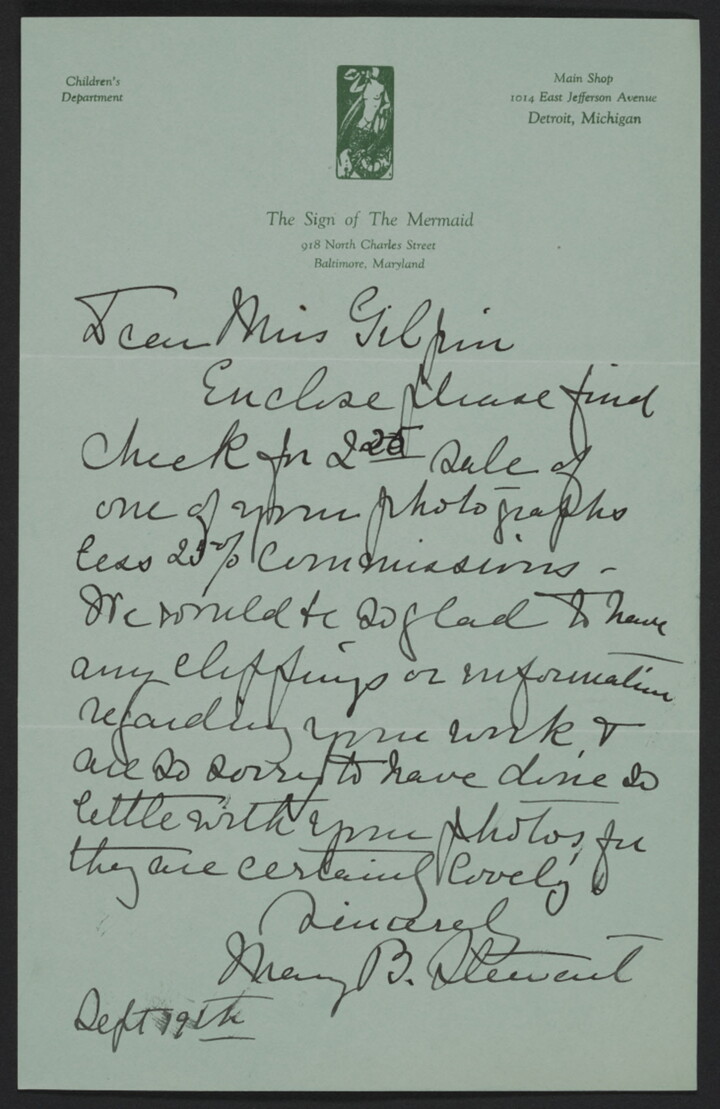 Children's
Department
Main Shop
1014 East Jefferson Avenue
Detroit, Michigan
The Sign of The Mermaid
918 North Charles Street
Baltimore, Maryland
Dear Miss Gilpin
Enclose please find
check for 2 25 sale of
one of your photographs
less 25% commissions -
We would be so glad to have
any clippings or information
regarding your work &
are so sorry to have done so
little with your photos, for
they are certainly lovely
Sincerely
Mary B. Stewart
Sept 19th